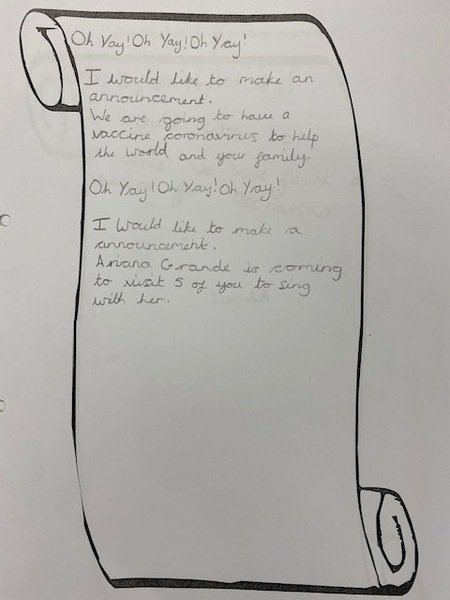 Oh Yay! Oh Yay! Oh Yay!
I would like to make an
announcement.
We are going to have a
vaccine coronavirus to help
the world and your family.
Oh Yay! Oh Yay! Oh Yay!
I would like to make a
announcement.
Ariana Grande is coming
to visit 5 of you to sing
with her.